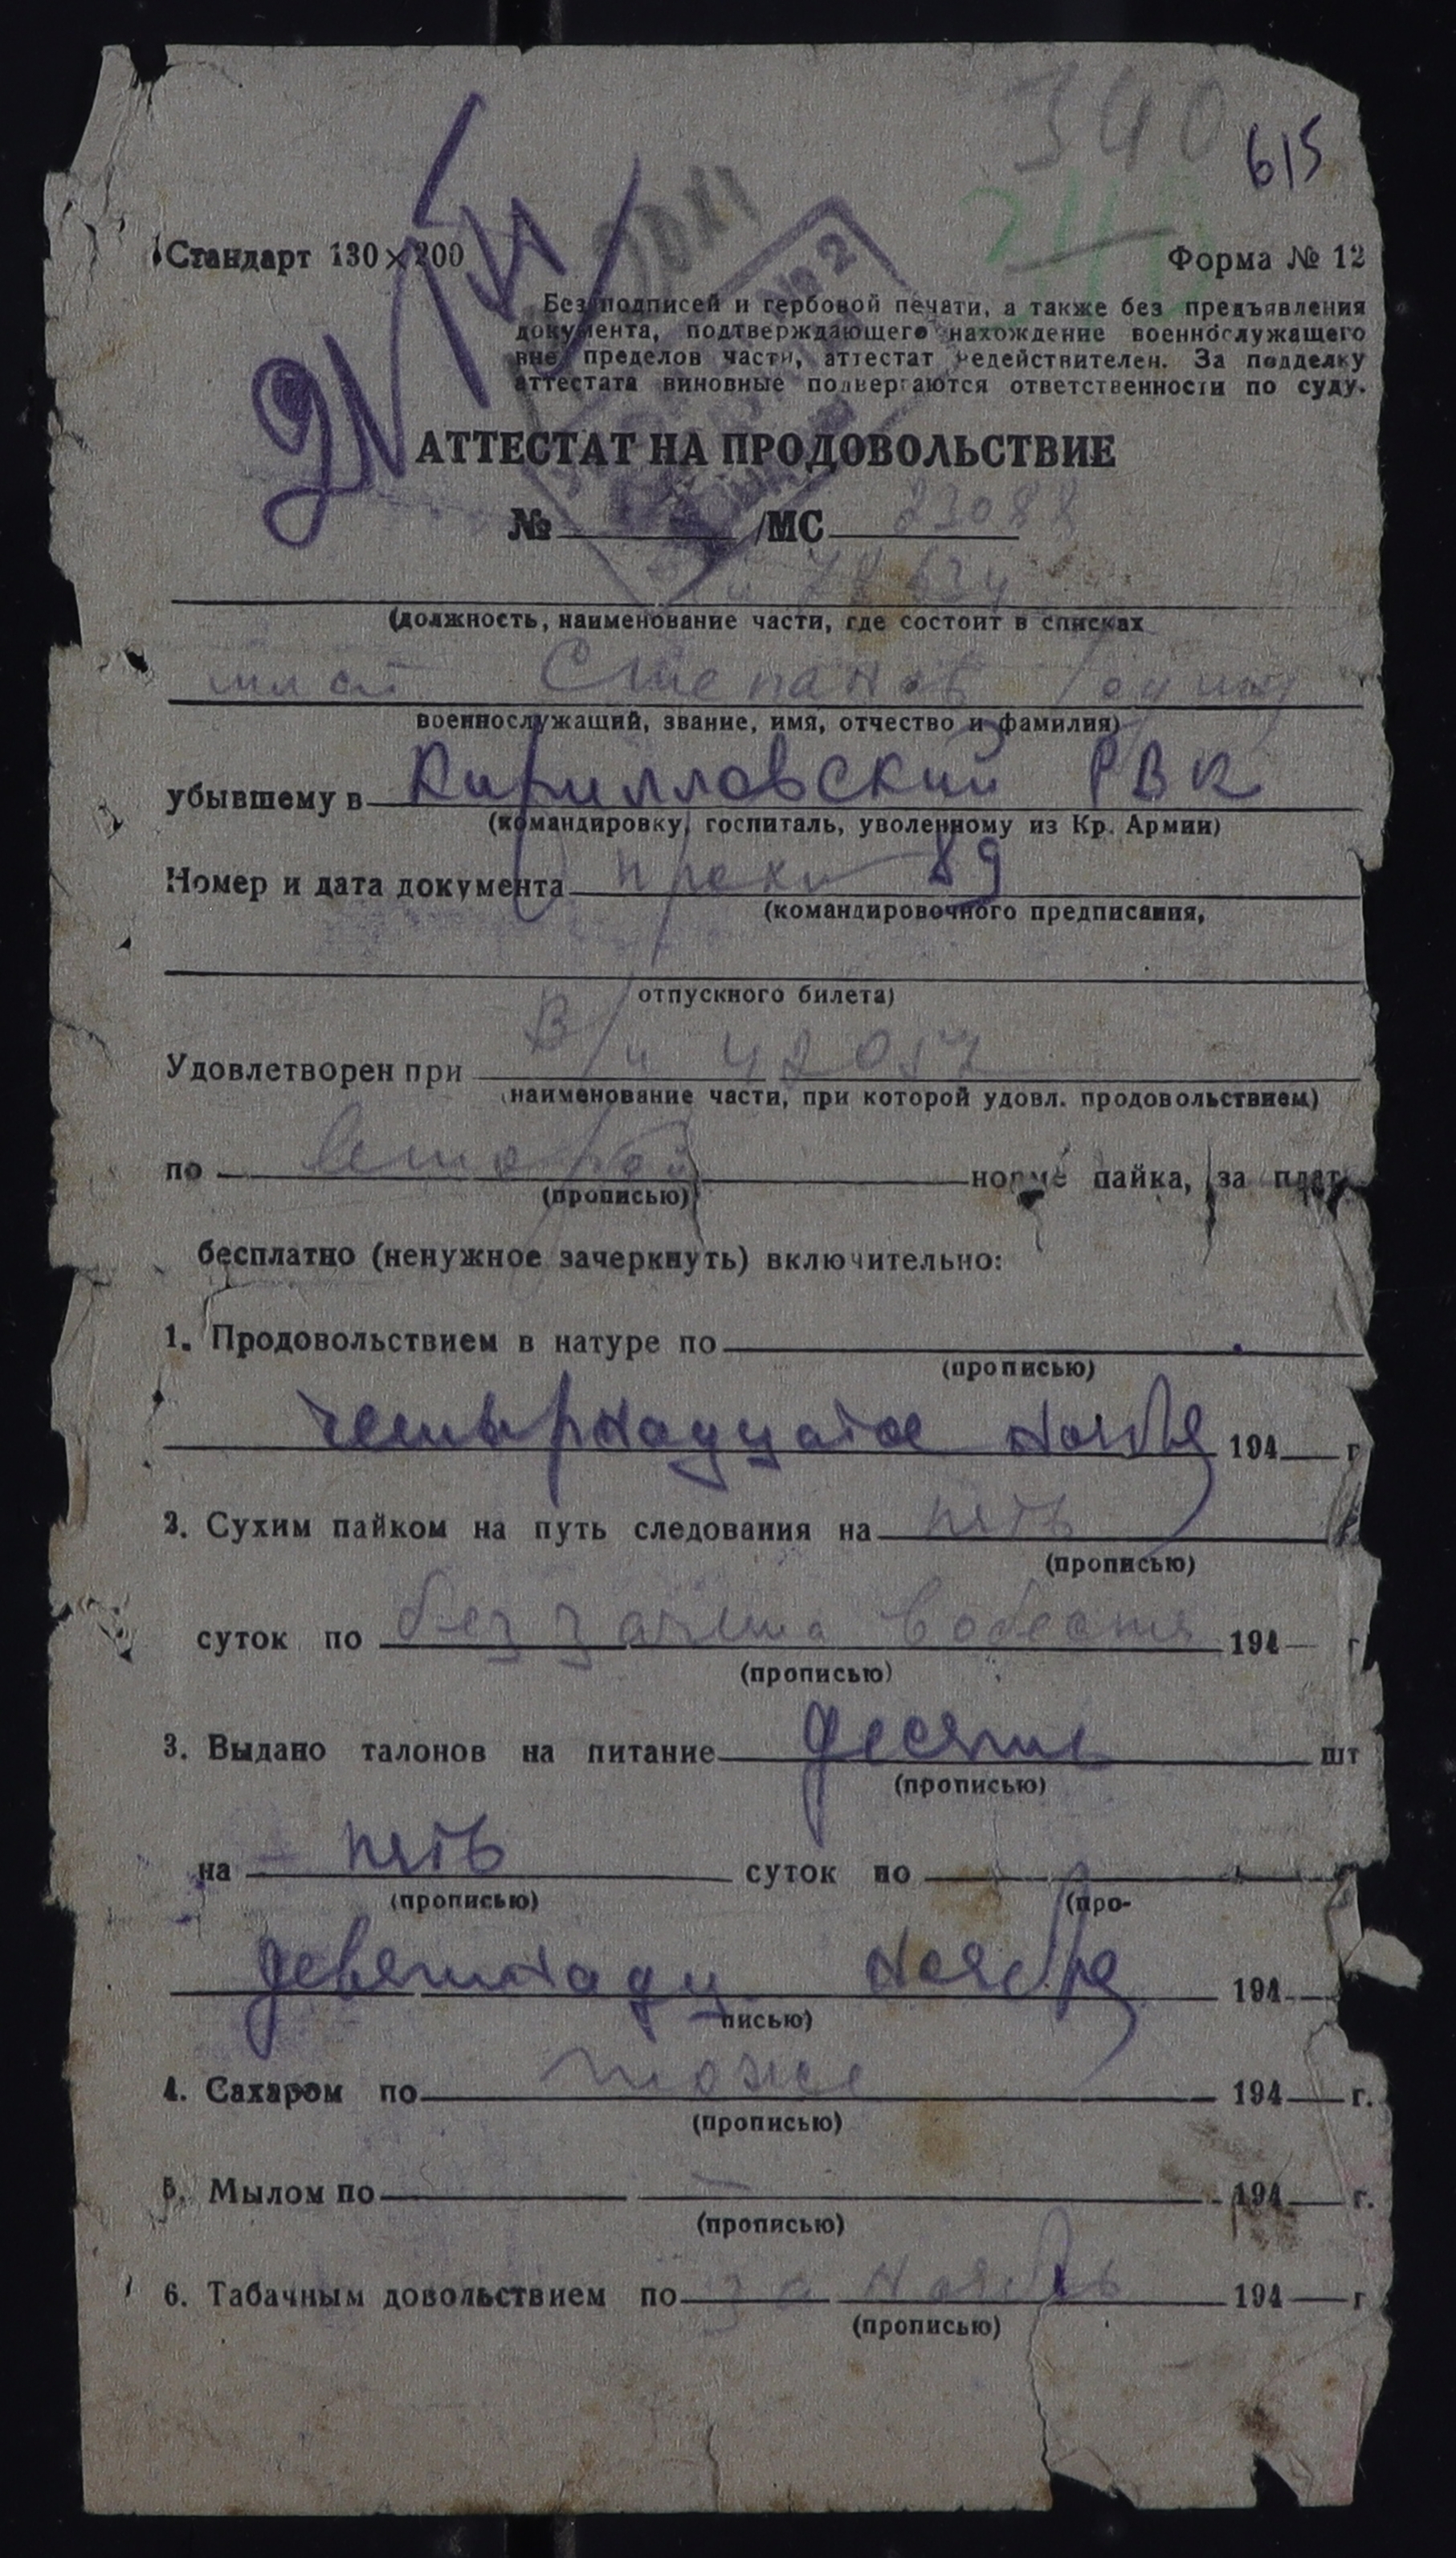 340
615
240
Стандарт 130×200
Форма № 12
№ 2
Без подписей и гербовой печати, а также без предъявления
документа, подтверждающего нахождение военнослужащего
вне пределов части, аттестат недействителен. За подделку
аттестата виновные подвергаются ответственности по суду.
АТТЕСТАТ НА ПРОДОВОЛЬСТВИЕ
№ /МС 23088
(должность, наименование части, где состоит в списках
Степанов
военнослужащий, звание, имя, отчество и фамилия)
убывшему в Кирилловский РВК
(командировку, госпиталь, уволенному из Кр. Армии)
Номер и дата документа 89
(командировочного предписания,
отпускного билета)
Удовлетворен при В/ч 42017
(наименование части, при которой удовл. продовольствием)
по второй норме пайка, за плат
(прописью)
бесплатно (ненужное зачеркнуть) включительно:
1. Продовольствием в натуре по
(прописью)
четырнадцатое ноября 194 г
2. Сухим пайком на путь следования на пять
(прописью)
суток по без 194 г
(прописью)
3. Выдано талонов на питание десять шт
(прописью)
на пять суток по
(прописью) (про-
девятнадц ноября 194
писью)
4. Сахаром по тоже 194 г.
(прописью)
5. Мылом по — 194 г.
(прописью)
6. Табачным довольствием по за ноябрь 194 г
(прописью)